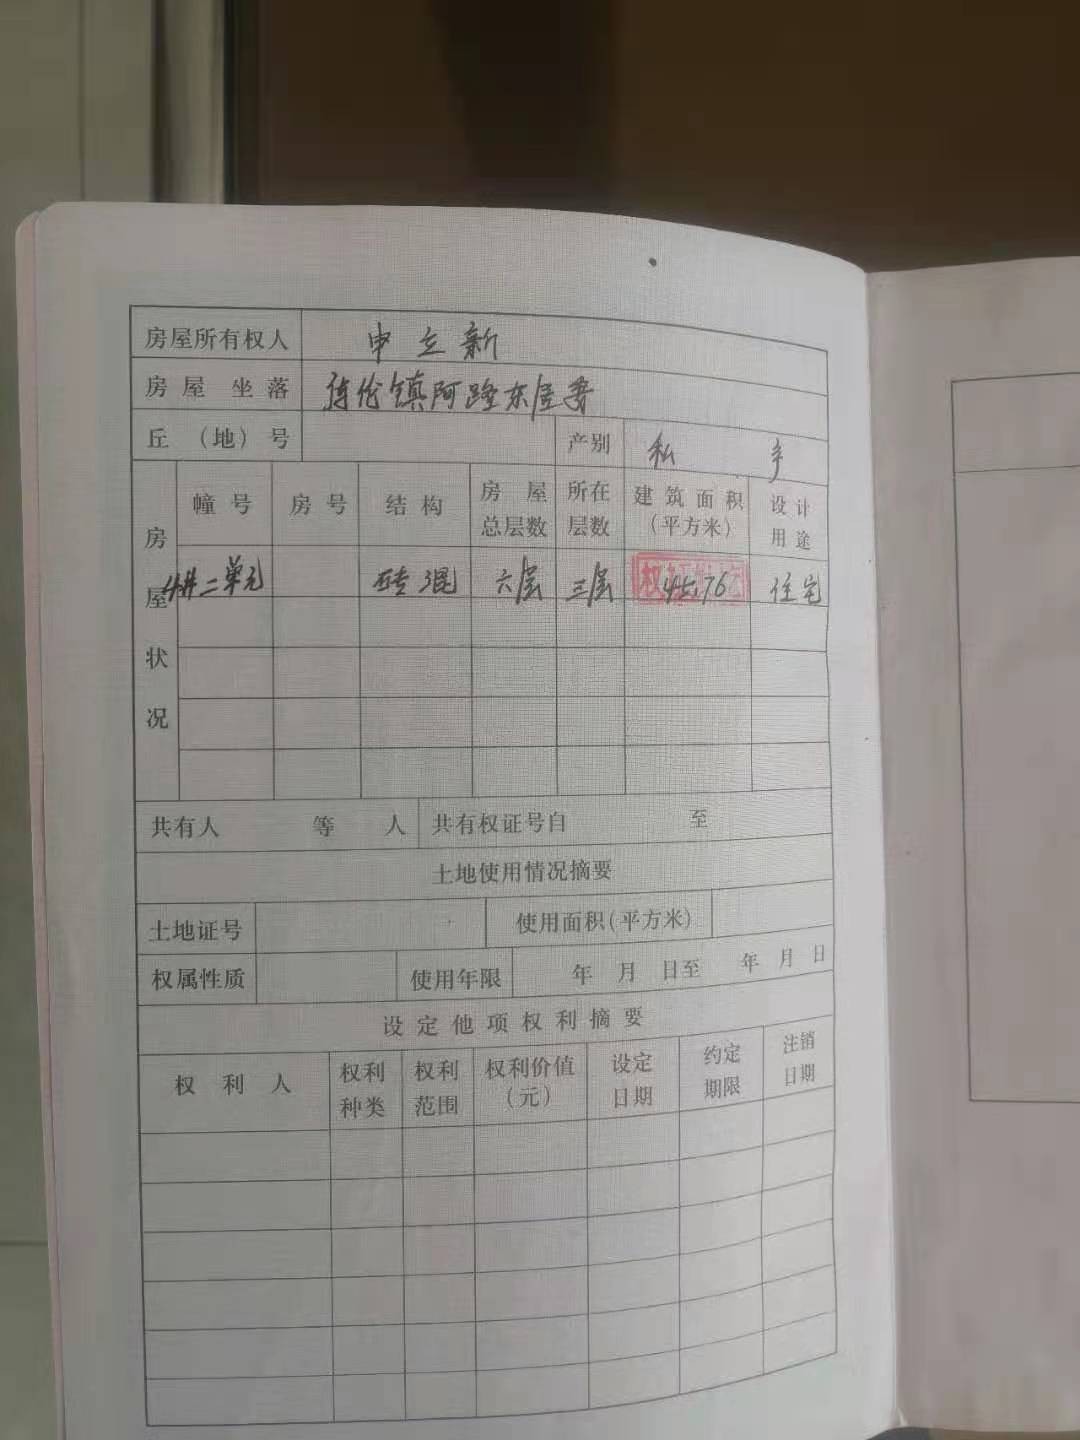 房屋所有权人 申立新
房屋坐落 镇阿路东居委
丘（地）号 产别 私 产
房屋状况
幢号 房号 结构 房屋总层数 所在层数 建筑面积（平方米） 设计用途
二单元 砖混 六层 三层 45.76 住宅
共有人 等 人 共有权证号自 至
土地使用情况摘要
土地证号 使用面积(平方米)
权属性质 使用年限 年 月 日至 年 月 日
设定他项权利摘要
权利人 权利种类 权利范围 权利价值（元） 设定日期 约定期限 注销日期